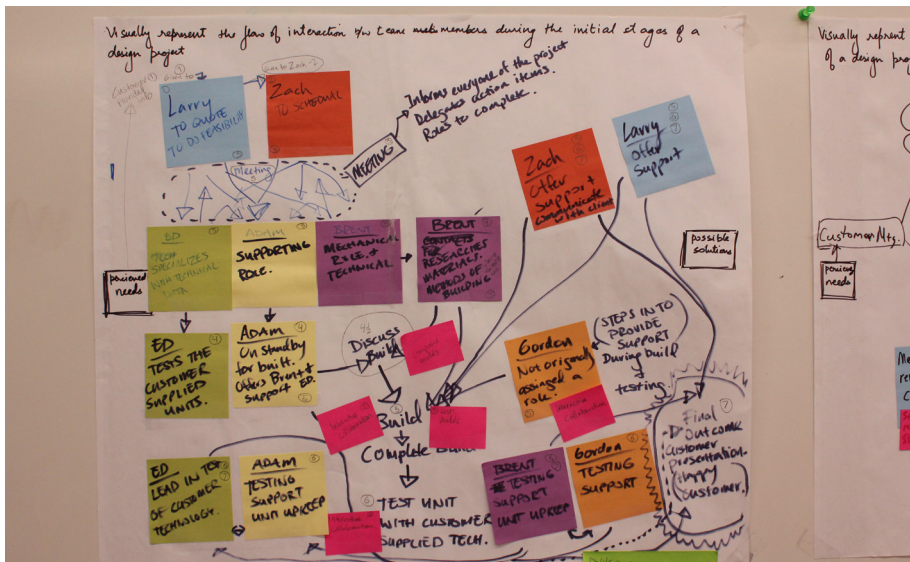 Visually represent the flow of interaction b/w team members during the initial stages of a
design project
Larry
TO QUOTE
TO DO FEASIBILITY
give to Zach
Zach
TO SCHEDULE
Meeting
MEETING
Informs everyone of the project
Delegates action items
Roles to complete.
Zach
Offer
Support +
communicate
with client
Larry
Offer
Support
percieved
needs
ED
TECH
SPECIALIZES
WITH TECHNICAL
DATA
ADAM
SUPPORTING
ROLE.
BRENT
MECHANICAL
ROLE +
TECHNICAL
BRENT
CONTACTS
FOR
RESEARCHES
MATERIALS.
METHODS OF
BUILDING
possible
solutions
ED
TESTS THE
CUSTOMER
SUPPLIED
UNITS.
ADAM
On standby
for built.
Offers Brent +
support ED.
4½
Discuss
Build
Gordon
Not originally
assigned a
role.
STEPS IN TO
PROVIDE
SUPPORT
During build
+
testing.
Build
Complete Build
ED
LEAD IN TEST
OF CUSTOMER
TECHNOLOGY.
ADAM
TESTING
SUPPORT
UNIT UPKEEP
TEST UNIT
WITH CUSTOMER
SUPPLIED TECH.
BRENT
TESTING
SUPPORT
UNIT UPKEEP
Gordon
TESTING
SUPPORT
7
Final
Outcome
Customer
presentation.
(Happy
Customer.)
Visually represent
of a design pro
Customer Mtg.
needs